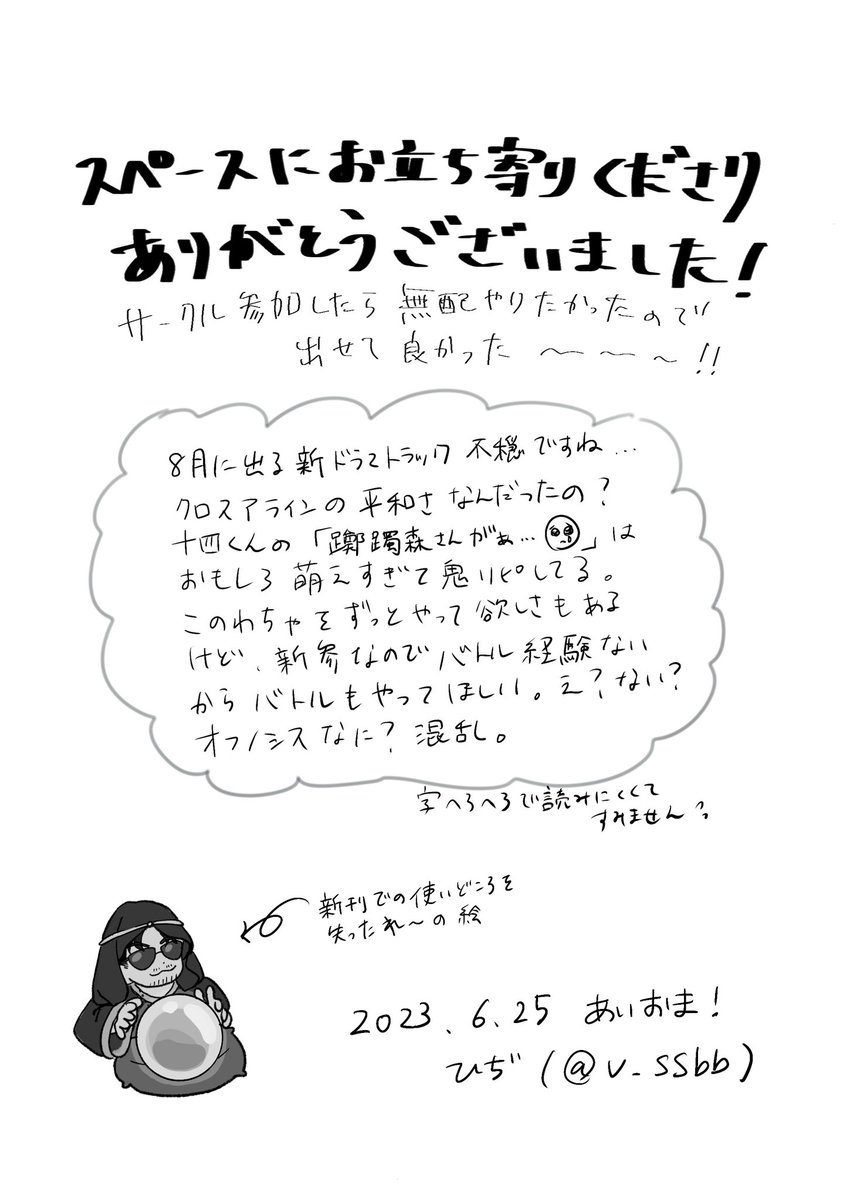 スペースにお立ち寄りくださり
ありがとうございました!
サークル参加したら無配やりたかったので
出せて良かった〜〜〜!!
8月に出る新ドラマトラック不穏ですね…
クロスアラインの平和さなんだったの?
十四くんの「躑躅森さんがぁ…🥹」は
おもしろ萌えすぎて鬼リピしてる。
このわちゃをずっとやって欲しさもある
けど、新参なのでバトル経験ない
からバトルもやってほしい。え?ない?
オフノシスなに?混乱。
字へろへろで読みにくくて
すみません
新刊での使いどころを
失ったれ〜の絵
2023.6.25 あいおま!
ひぢ(@v_ssbb)